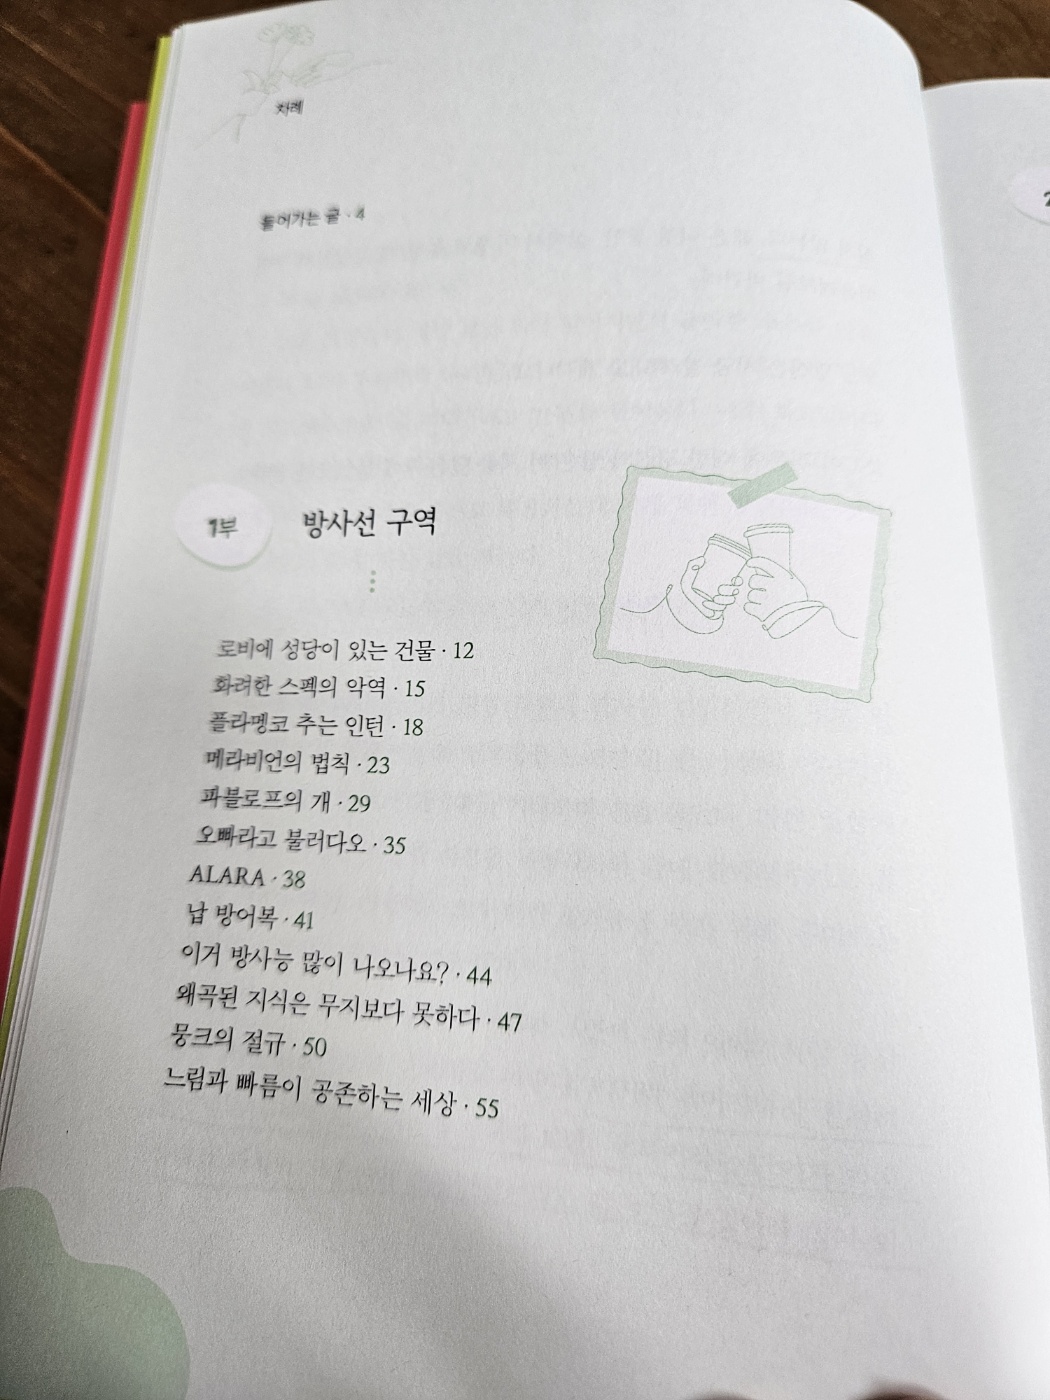 차례
들어가는 글 · 4
1부
방사선 구역
로비에 성당이 있는 건물 · 12
화려한 스펙의 악역 · 15
플라멩코 추는 인턴 · 18
메라비언의 법칙 · 23
파블로프의 개 · 29
오빠라고 불러다오 · 35
ALARA · 38
납 방어복 · 41
이거 방사능 많이 나오나요? · 44
왜곡된 지식은 무지보다 못하다 · 47
뭉크의 절규 · 50
느림과 빠름이 공존하는 세상 · 55